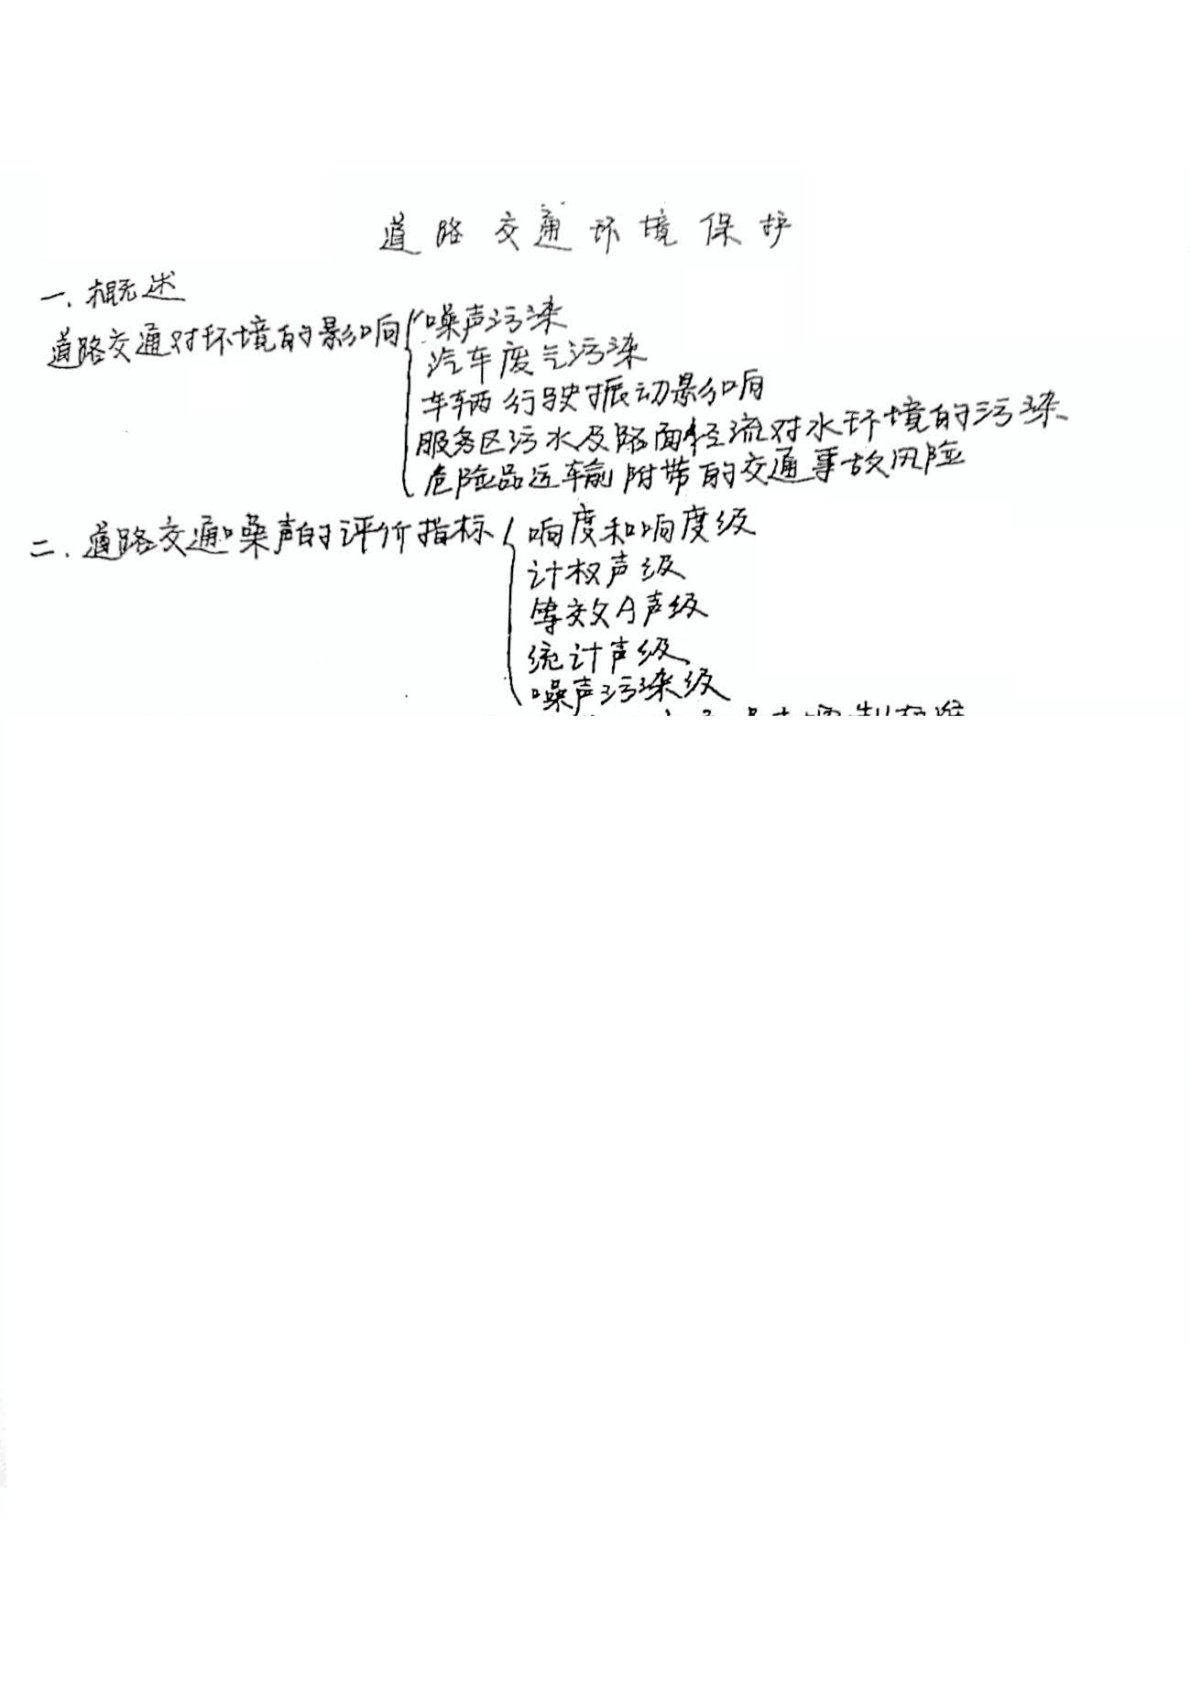 道路交通环境保护
一、概述
道路交通对环境的影响{噪声污染
汽车废气污染
车辆行驶振动影响
服务区污水及路面径流对水环境的污染
危险品运输附带的交通事故风险
二、道路交通噪声的评价指标{响度和响度级
计权声级
等效A声级
统计声级
噪声污染级